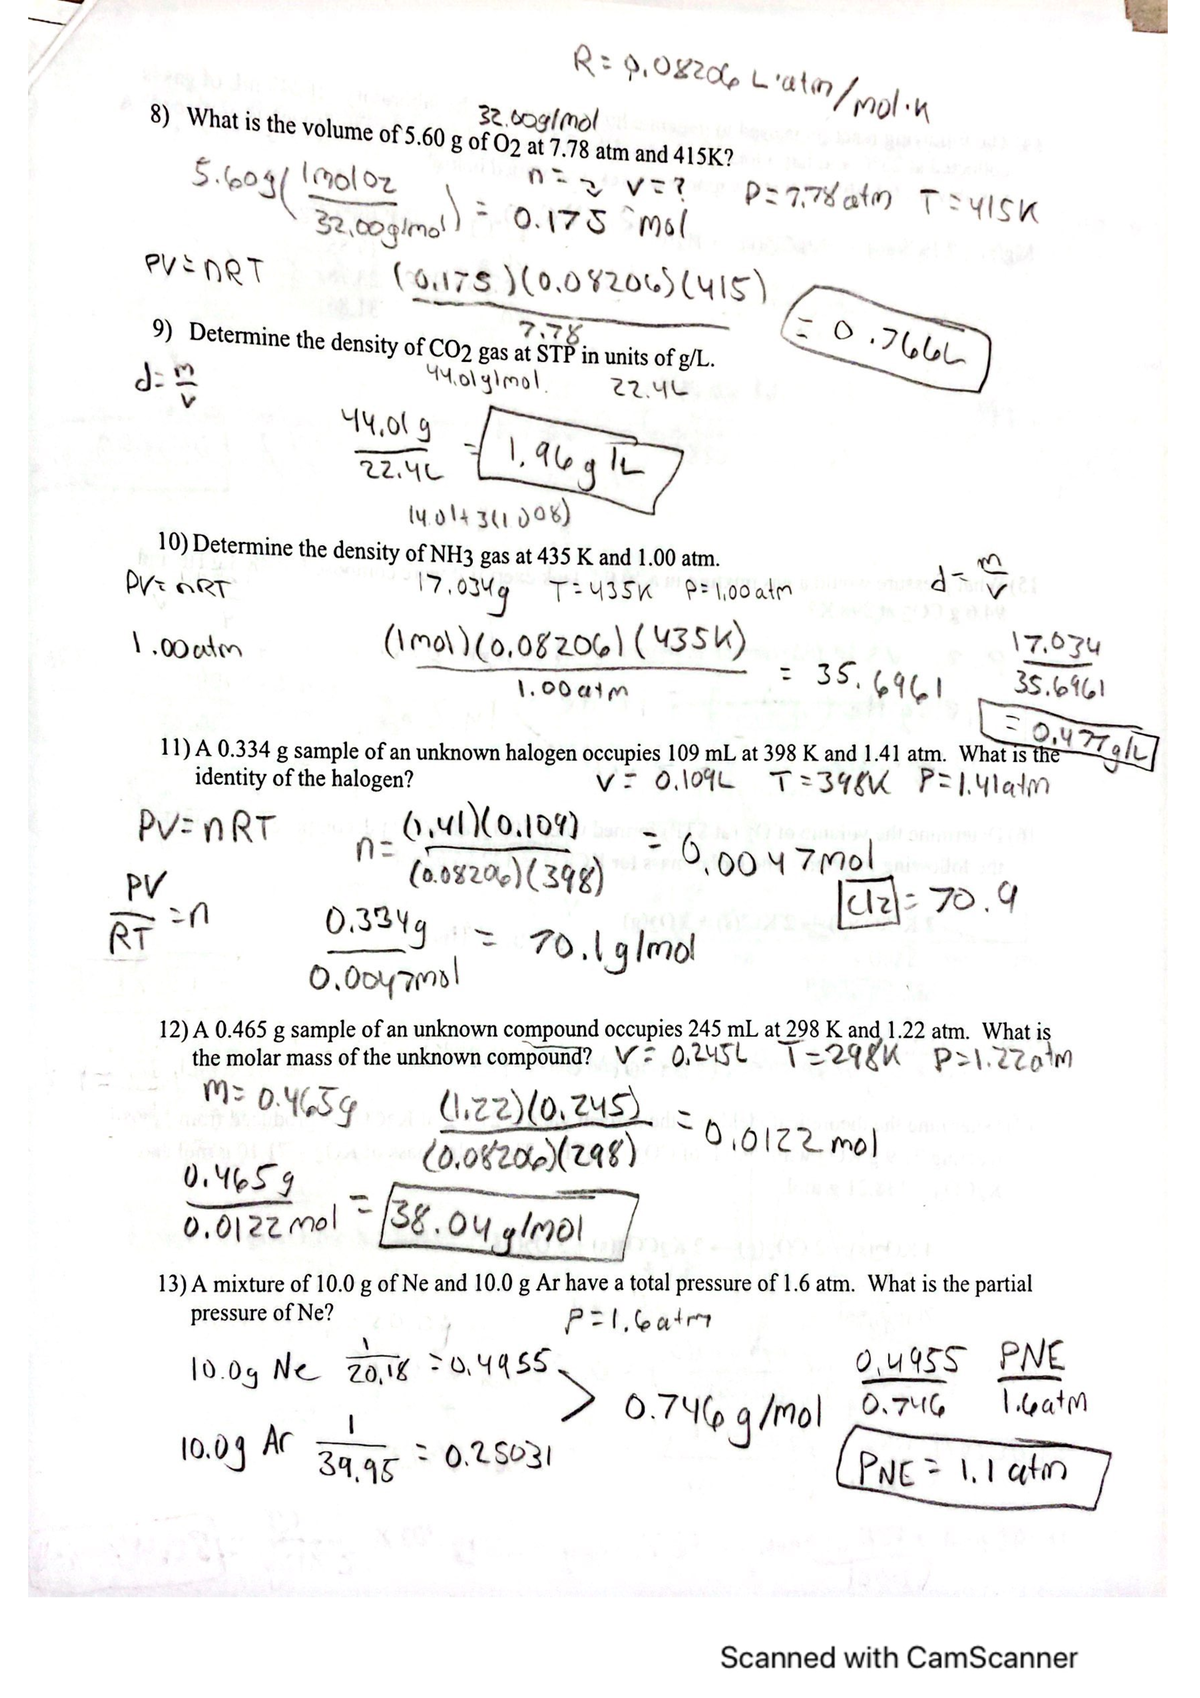 R = 0.08206 L·atm/mol·K
32.00g/mol
8) What is the volume of 5.60 g of O2 at 7.78 atm and 415K?
n = ? V = ? P = 7.78 atm T = 415K
5.60g ( 1mol O2 / 32.00g/mol ) = 0.175 mol
PV = nRT (0.175)(0.08206)(415) / 7.78 = 0.766L
9) Determine the density of CO2 gas at STP in units of g/L.
d = m/v 44.01g/mol. 22.4L
44.01 g / 22.4L = 1.96 g/L
14.01+3(1.008)
10) Determine the density of NH3 gas at 435 K and 1.00 atm.
PV = nRT 17.034g T = 435K P = 1.00 atm d = m/v
1.00 atm (1mol)(0.08206)(435K) / 1.00 atm = 35.6961 17.034 / 35.6961
= 0.477g/L
11) A 0.334 g sample of an unknown halogen occupies 109 mL at 398 K and 1.41 atm. What is the
identity of the halogen? V = 0.109L T = 398K P = 1.41atm
PV = nRT n = (1.41)(0.109) / (0.08206)(398) = 0.0047mol
PV/RT = n Cl2 = 70.9
0.334g / 0.0047mol = 70.1g/mol
12) A 0.465 g sample of an unknown compound occupies 245 mL at 298 K and 1.22 atm. What is
the molar mass of the unknown compound? V = 0.245L T = 298K P = 1.22atm
m = 0.465g (1.22)(0.245) / (0.08206)(298) = 0.0122 mol
0.465g / 0.0122 mol = 38.04 g/mol
13) A mixture of 10.0 g of Ne and 10.0 g Ar have a total pressure of 1.6 atm. What is the partial
pressure of Ne? P = 1.6 atm
10.0g Ne 1 / 20.18 = 0.4955
> 0.746 g/mol 0.4955 / 0.746 PNE / 1.6atm
10.0g Ar 1 / 39.95 = 0.25031
PNE = 1.1 atm
Scanned with CamScanner